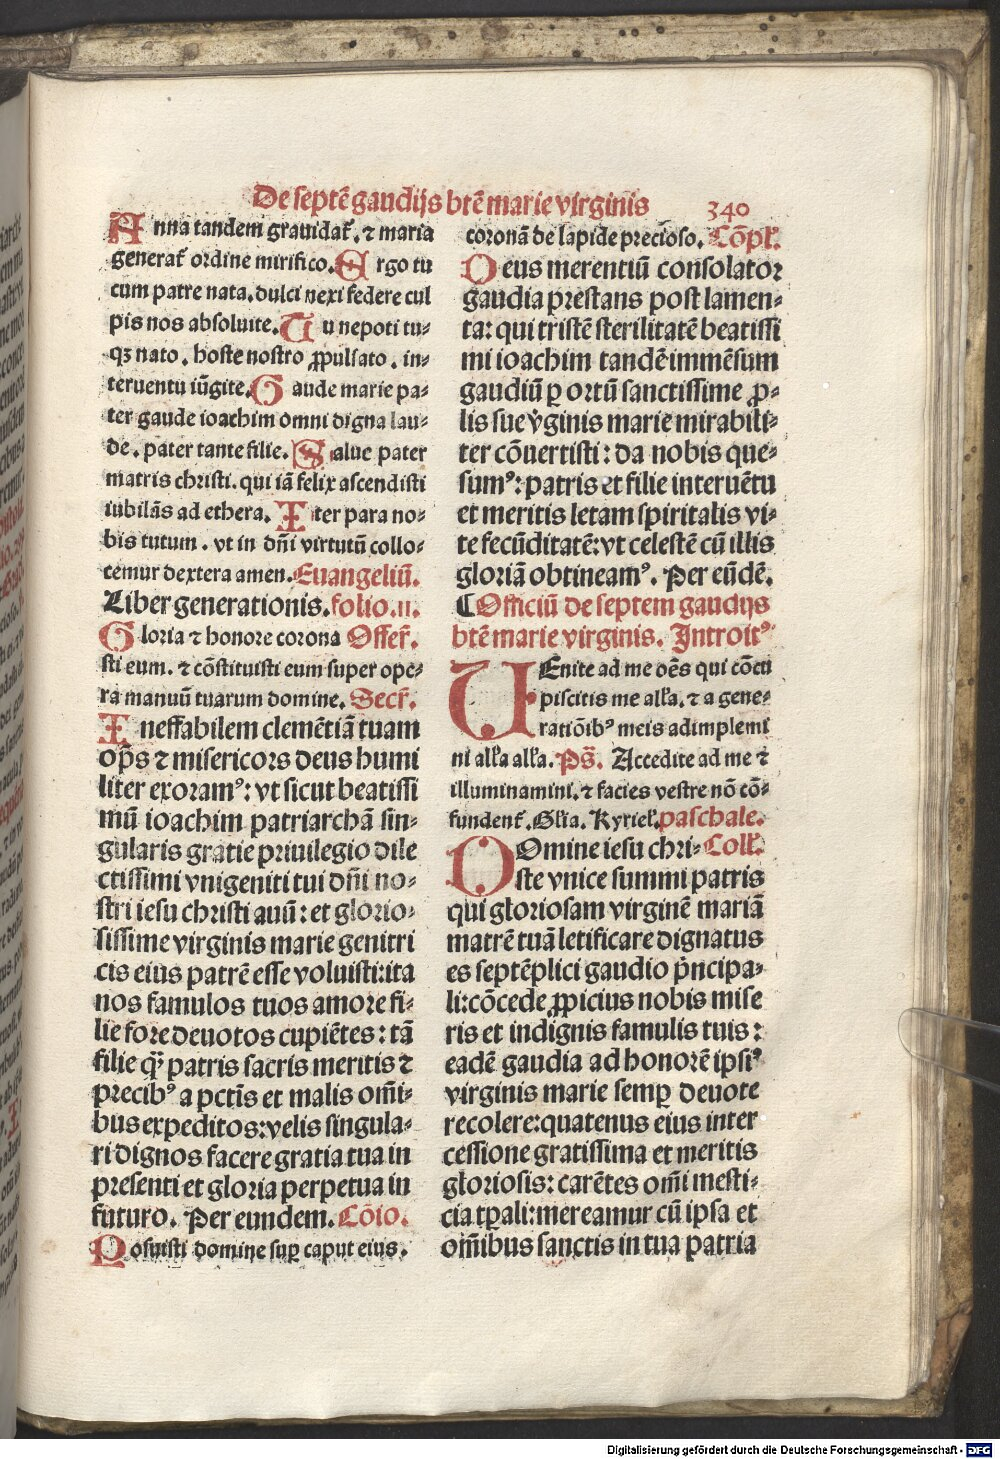 De septē gaudijs btē marie virginis 340
Anna tandem grauidat̄. ⁊ maria
generat̄ ordine mirifico. Ergo tu
cum patre nata. dulci nexi federe cul
pis nos absoluite. Tu nepoti tu⸗
qꝫ nato. hoste nostro ꝓpulsato. in⸗
teruentu iūgite. Gaude marie pa⸗
ter gaude ioachim omni digna lau⸗
de. pater tante filie. Salue pater
matris christi. qui iā felix ascendisti
iubilās ad ethera. Iter para no⸗
bis tutum. vt in dn̄i virtutū collo⸗
cemur dextera amen. Euangeliū.
Liber generationis. folio. ıı.
Gloria ⁊ honore corona Offer̄.
sti eum. ⁊ cōstituisti eum super ope⸗
ra manuū tuarum domine. Secr̄.
Ineffabilem clemētiā tuam
op̄s ⁊ misericors deus humi
liter exoramꝰ: vt sicut beatissi
mū ioachim patriarchā sin⸗
gularis gratie priuilegio dile
ctissimi vnigeniti tui dn̄i no⸗
stri iesu christi auū: et glorio⸗
sissime virginis marie genitri
cis eius patrē esse voluisti: ita
nos famulos tuos amore fi⸗
lie fore deuotos cupiētes: tā
filie qͣꝫ patris sacris meritis ⁊
precibꝰ a pctīs et malis om̄i⸗
bus expeditos: velis singula⸗
ri dignos facere gratia tua in
presenti et gloria perpetua in
futuro. Per eundem. Cōio.
Posuisti domine suꝑ caput eius.
coronā de lapide precioso. Cōpl̄.
Deus merentiū consolator
gaudia prestans post lamen⸗
ta: qui tristē sterilitatē beatissi
mi ioachim tandē immēsum
gaudiū ꝑ ortū sanctissime ꝓ⸗
lis sue v̓ginis marie mirabili⸗
ter cōuertisti: da nobis que⸗
sumꝰ: patris et filie interuētu
et meritis letam spiritalis vi⸗
te fecūditatē: vt celestē cū illis
gloriā obtineamꝰ. Per eūdē.
¶ Officiū de septem gaudijs
btē marie virginis. Introitꝰ
UEnite ad me oēs qui cōcu
piscitis me all̄a. ⁊ a gene⸗
ratiōibꝰ meis adimplemi
ni all̄a all̄a. Ps̄. Accedite ad me ⁊
illuminamini. ⁊ facies vestre nō cō⸗
fundent̄. Gl̄ia. Kyriel̄. paschale.
DOmine iesu chri⸗ Coll̄.
ste vnice summi patris
qui gloriosam virginē mariā
matrē tuā letificare dignatus
es septēplici gaudio pͥncipa⸗
li: cōcede ꝓpicius nobis mise
ris et indignis famulis tuis:
eadē gaudia ad honorē ipsiꝰ
virginis marie semꝑ deuote
recolere: quatenus eius inter
cessione gratissima et meritis
gloriosis: carētes om̄i mesti⸗
cia tꝑali: mereamur cū ipsa et
om̄ibus sanctis in tua patria
Digitalisierung gefördert durch die Deutsche Forschungsgemeinschaft - DFG